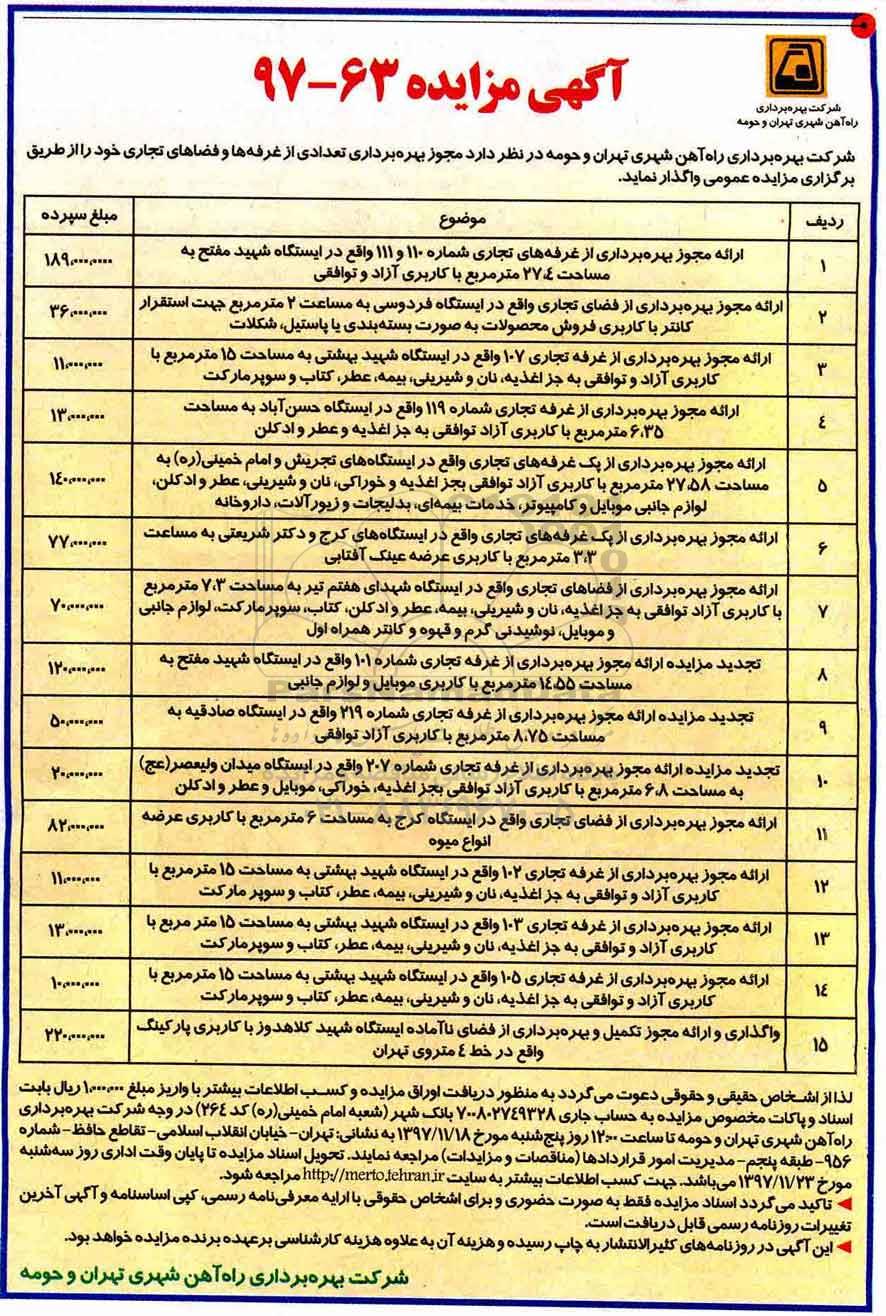 شرکت بهره‌برداری
راه‌آهن شهری تهران و حومه
آگهی مزایده ۶۳-۹۷
شرکت بهره‌برداری راه‌آهن شهری تهران و حومه در نظر دارد مجوز بهره‌برداری تعدادی از غرفه‌ها و فضاهای تجاری خود را از طریق
برگزاری مزایده عمومی واگذار نماید.
ردیف موضوع مبلغ سپرده
۱ ارائه مجوز بهره‌برداری از غرفه‌های تجاری شماره ۱۱۰ و ۱۱۱ واقع در ایستگاه شهید مفتح به
مساحت ۲۷،٤ مترمربع با کاربری آزاد و توافقی ۱۸۹،۰۰۰،۰۰۰۰
۲ ارائه مجوز بهره‌برداری از فضای تجاری واقع در ایستگاه فردوسی به مساعت ۲ مترمربع جهت استقرار
کانتر با کاربری فروش محصولات به صورت بسته‌بندی یا پاستیل، شکلات ۳۶،۰۰۰،۰۰۰
۳ ارائه مجوز بهره‌برداری از غرفه تجاری ۱۰۷ واقع در ایستگاه شهید بهشتی به مساحت ۱۵ مترمربع با
کاربری آزاد و توافقی به جز اغذیه، نان و شیرینی، بیمه، عطر، کتاب و سوپرمارکت ۱۱،۰۰۰،۰۰۰
٤ ارائه مجوز بهره‌برداری از غرفه تجاری شماره ۱۱۹ واقع در ایستگاه حسن‌آباد به مساحت
۶،۳۵ مترمربع با کاربری آزاد توافقی به جز اغذیه و عطر و ادکلن ۱۳،۰۰۰،۰۰۰
۵ ارائه مجوز بهره‌برداری از یک غرفه‌های تجاری واقع در ایستگاه‌های تجریش و امام خمینی(ره) به
مساحت ۲۷،۵۸ مترمربع با کاربری آزاد توافقی بجز اغذیه و خوراکی، نان و شیرینی، عطر و ادکلن،
لوازم جانبی موبایل و کامپیوتر، خدمات بیمه‌ای، بدلیجات و زیورآلات، داروخانه ۱٤۰،۰۰۰،۰۰۰
۶ ارائه مجوز بهره‌برداری از یک غرفه‌های تجاری واقع در ایستگاه‌های کرج و دکتر شریعتی به مساعت
۳،۳ مترمربع با کاربری عرضه عینک آفتابی ۷۷،۰۰۰،۰۰۰
۷ ارائه مجوز بهره‌برداری از فضاهای تجاری واقع در ایستگاه شهدای هفتم تیر به مساحت ۷،۳ مترمربع
با کاربری آزاد توافقی به جز اغذیه، نان و شیرینی، بیمه، عطر و ادکلن، کتاب، سوپرمارکت، لوازم جانبی
و موبایل، نوشیدنی گرم و قهوه و کانتر همراه اول ۷۰،۰۰۰،۰۰۰
۸ تجدید مزایده ارائه مجوز بهره‌برداری از غرفه تجاری شماره ۱۰۱ واقع در ایستگاه شهید مفتح به
مساحت ۱٤،۵۵ مترمربع با کاربری موبایل و لوازم جانبی ۱۲۰،۰۰۰،۰۰۰
۹ تجدید مزایده ارائه مجوز بهره‌برداری از غرفه تجاری شماره ۲۱۹ واقع در ایستگاه صادقیه به
مساحت ۸،۷۵ مترمربع با کاربری آزاد توافقی ۵۰،۰۰۰،۰۰۰
۱۰ تجدید مزایده ارائه مجوز بهره‌برداری از غرفه تجاری شماره ۲۰۷ واقع در ایستگاه میدان ولیعصر(عج)
به مساحت ۶،۸ مترمربع با کاربری آزاد توافقی بجز اغذیه، خوراکی، موبایل و عطر و ادکلن ۲۰،۰۰۰،۰۰۰
۱۱ ارائه مجوز بهره‌برداری از فضای تجاری واقع در ایستگاه کرج به مساحت ۶ مترمربع با کاربری عرضه
انواع میوه ۸۲،۰۰۰،۰۰۰
۱۲ ارائه مجوز بهره‌برداری از غرفه تجاری ۱۰۲ واقع در ایستگاه شهید بهشتی به مساحت ۱۵ مترمربع با
کاربری آزاد و توافقی به جز اغذیه، نان و شیرینی، بیمه، عطر، کتاب و سوپر مارکت ۱۱،۰۰۰،۰۰۰
۱۳ ارائه مجوز بهره‌برداری از غرفه تجاری ۱۰۳ واقع در ایستگاه شهید بهشتی به مساحت ۱۵ متر مربع با
کاربری آزاد و توافقی به جز اغذیه، نان و شیرینی، بیمه، عطر، کتاب و سوپرمارکت ۱۳،۰۰۰،۰۰۰
۱٤ ارائه مجوز بهره‌برداری از غرفه تجاری ۱۰۵ واقع در ایستگاه شهید بهشتی به مساحت ۱۵ مترمربع با
کاربری آزاد و توافقی به جز اغذیه، نان و شیرینی، بیمه، عطر، کتاب و سوپرمارکت ۱۰،۰۰۰،۰۰۰
۱۵ واگذاری و ارائه مجوز تکمیل و بهره‌برداری از فضای ناآماده ایستگاه شهید کلاهدوز با کاربری پارکینگ
واقع در خط ٤ متروی تهران ۲۲۰،۰۰۰،۰۰۰
لذا از اشخاص حقیقی و حقوقی دعوت می‌گردد به منظور دریافت اوراق مزایده و کسب اطلاعات بیشتر با واریز مبلغ ۱،۰۰۰،۰۰۰ ریال بابت
اسناد و پاکات مخصوص مزایده به حساب جاری ۷۰۰۸۰۲۷٤۹۳۲۸ بانک شهر (شعبه امام خمینی(ره) کد ۲۶٤) در وجه شرکت بهره‌برداری
راه‌آهن شهری تهران و حومه تا ساعت ۱۲:۰۰ روز پنج‌شنبه مورخ ۱۳۹۷/۱۱/۱۸ به نشانی: تهران- خیابان انقلاب اسلامی- تقاطع حافظ- شماره
۹۵۶- طبقه پنجم- مدیریت امور قراردادها (مناقصات و مزایدات) مراجعه نمایند. تحویل اسناد مزایده تا پایان وقت اداری روز سه‌شنبه
مورخ ۱۳۹۷/۱۱/۲۳ می‌باشد. جهت کسب اطلاعات بیشتر به سایت http://merto.tehran.ir مراجعه شود.
تاکید می‌گردد اسناد مزایده فقط به صورت حضوری و برای اشخاص حقوقی با ارایه معرفی‌نامه رسمی، کپی اساسنامه و آگهی آخرین
تغییرات روزنامه رسمی قابل دریافت است.
این آگهی در روزنامه‌های کثیرالانتشار به چاپ رسیده و هزینه آن به علاوه هزینه کارشناسی برعهده برنده مزایده خواهد بود.
شرکت بهره‌برداری راه‌آهن شهری تهران و حومه